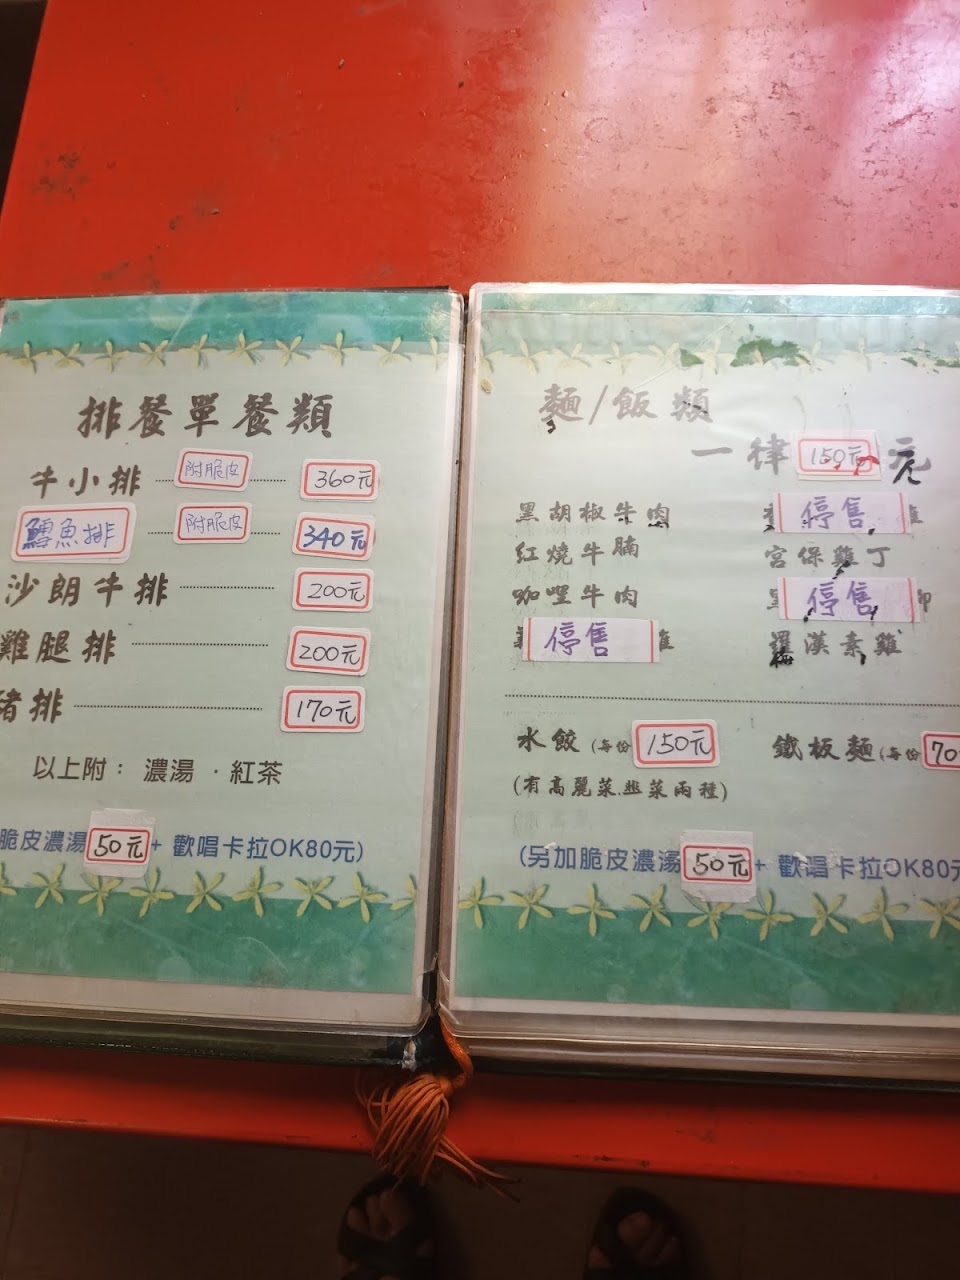 排餐單餐類
牛小排 附脆皮 360元
鱈魚排 附脆皮 340元
沙朗牛排 200元
雞腿排 200元
豬排 170元
以上附：濃湯．紅茶
脆皮濃湯50元+歡唱卡拉OK80元)
麵/飯類
一律150元元
黑胡椒牛肉 停售
紅燒牛腩 宮保雞丁
咖哩牛肉 停售
停售 羅漢素雞
水餃(每份150元 鐵板麵(每份70
(有高麗菜.韭菜兩種)
(另加脆皮濃湯50元+歡唱卡拉OK80元